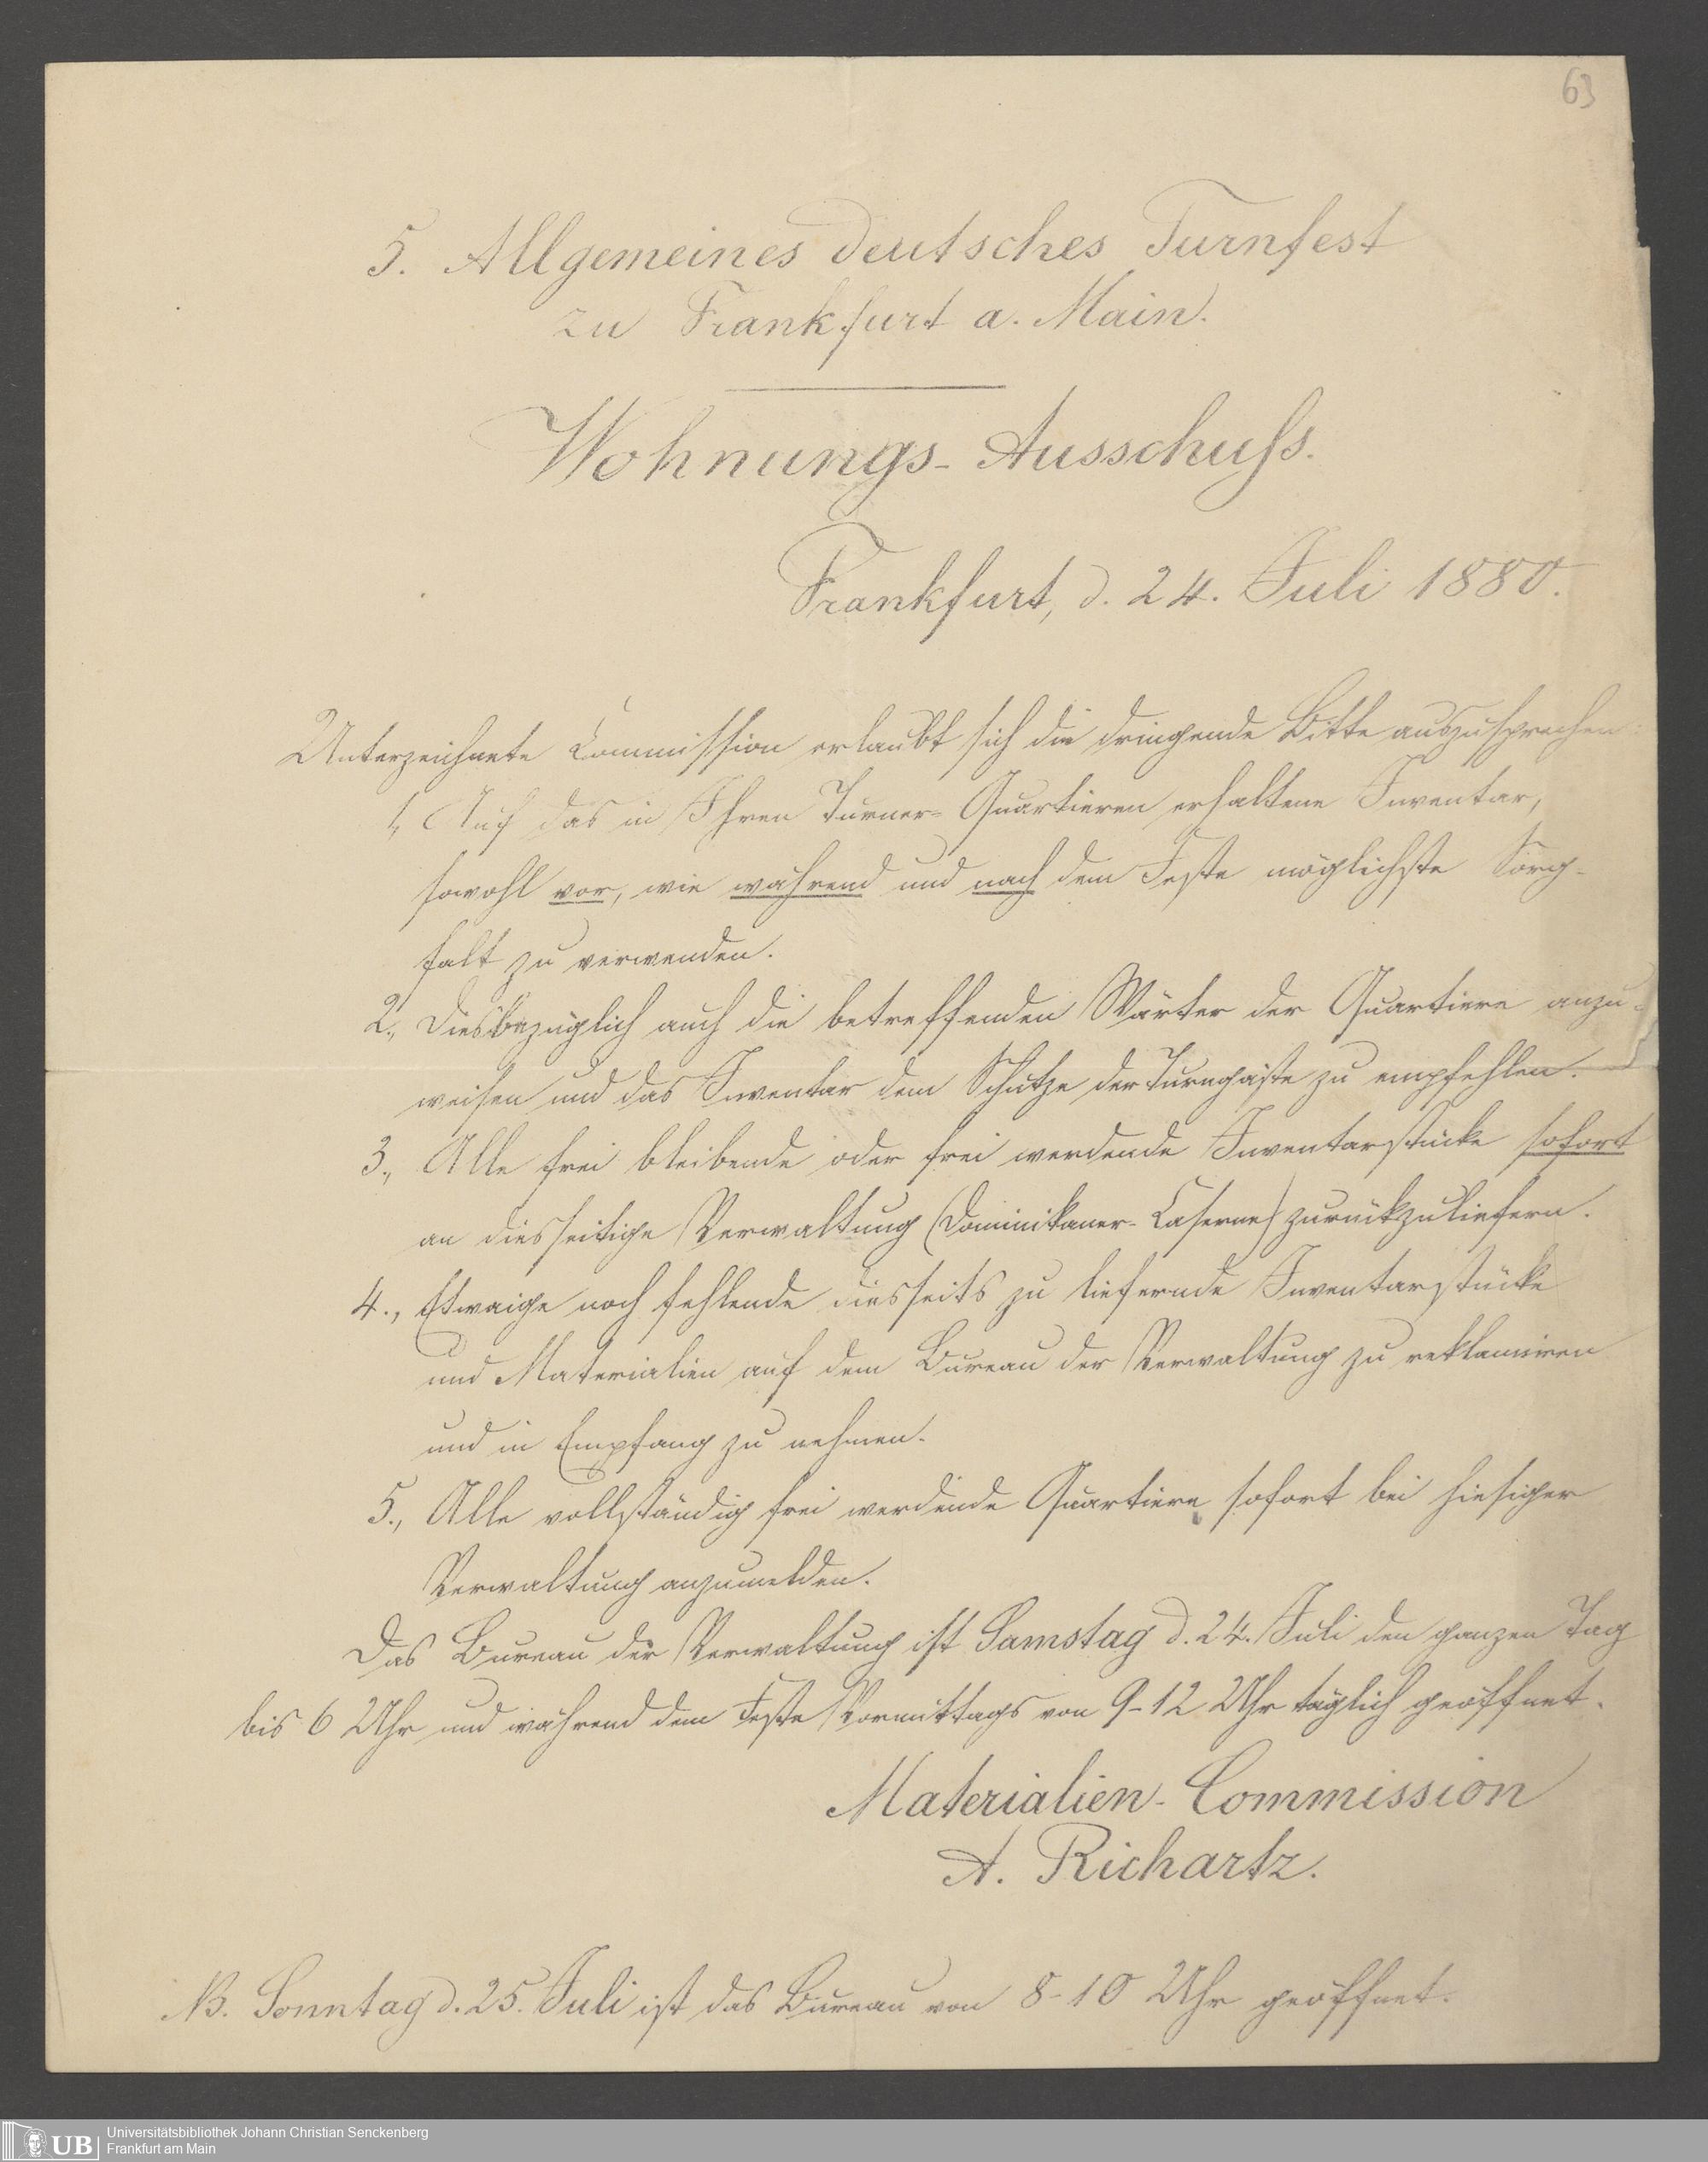 63
5. Allgemeines deutsches Turnfest
zu Frankfurt a. Main.
Wohnungs-Ausschuſs.
Frankfurt, d. 24. Juli 1880.
Unterzeichnete Commission erlaubt sich die dringende Bitte auszusprechen:
1, Auf das in Ihren Turner-Quartieren erhaltene Inventar,
sowohl vor, wie während und nach dem Feste möglichste Sorg-
falt zu verwenden.
2., Diesbezüglich auch die betreffenden Wärter der Quartiere anzu-
weisen und das Inventar dem Schutze der Turngäste zu empfehlen.
3., Alle frei bleibende oder frei werdende Inventarstücke sofort
an diesseitige Verwaltung (Dominikaner-Caserne) zurückzuliefern.
4., Etwaige noch fehlende diesseits zu liefernde Inventarstücke
und Materialien auf dem Bureau der Verwaltung zu reklamiren
und in Empfang zu nehmen.
5., Alle vollständig frei werdende Quartiere sofort bei hiesiger
Verwaltung anzumelden.
Das Bureau der Verwaltung ist Samstag d. 24. Juli den ganzen Tag
bis 6 Uhr und während dem Feste Vormittags von 9-12 Uhr täglich geöffnet.
Materialien-Commission
A. Richartz.
NB. Sonntag d. 25. Juli ist das Bureau von 8-10 Uhr geöffnet.
UB
Universitätsbibliothek Johann Christian Senckenberg
Frankfurt am Main